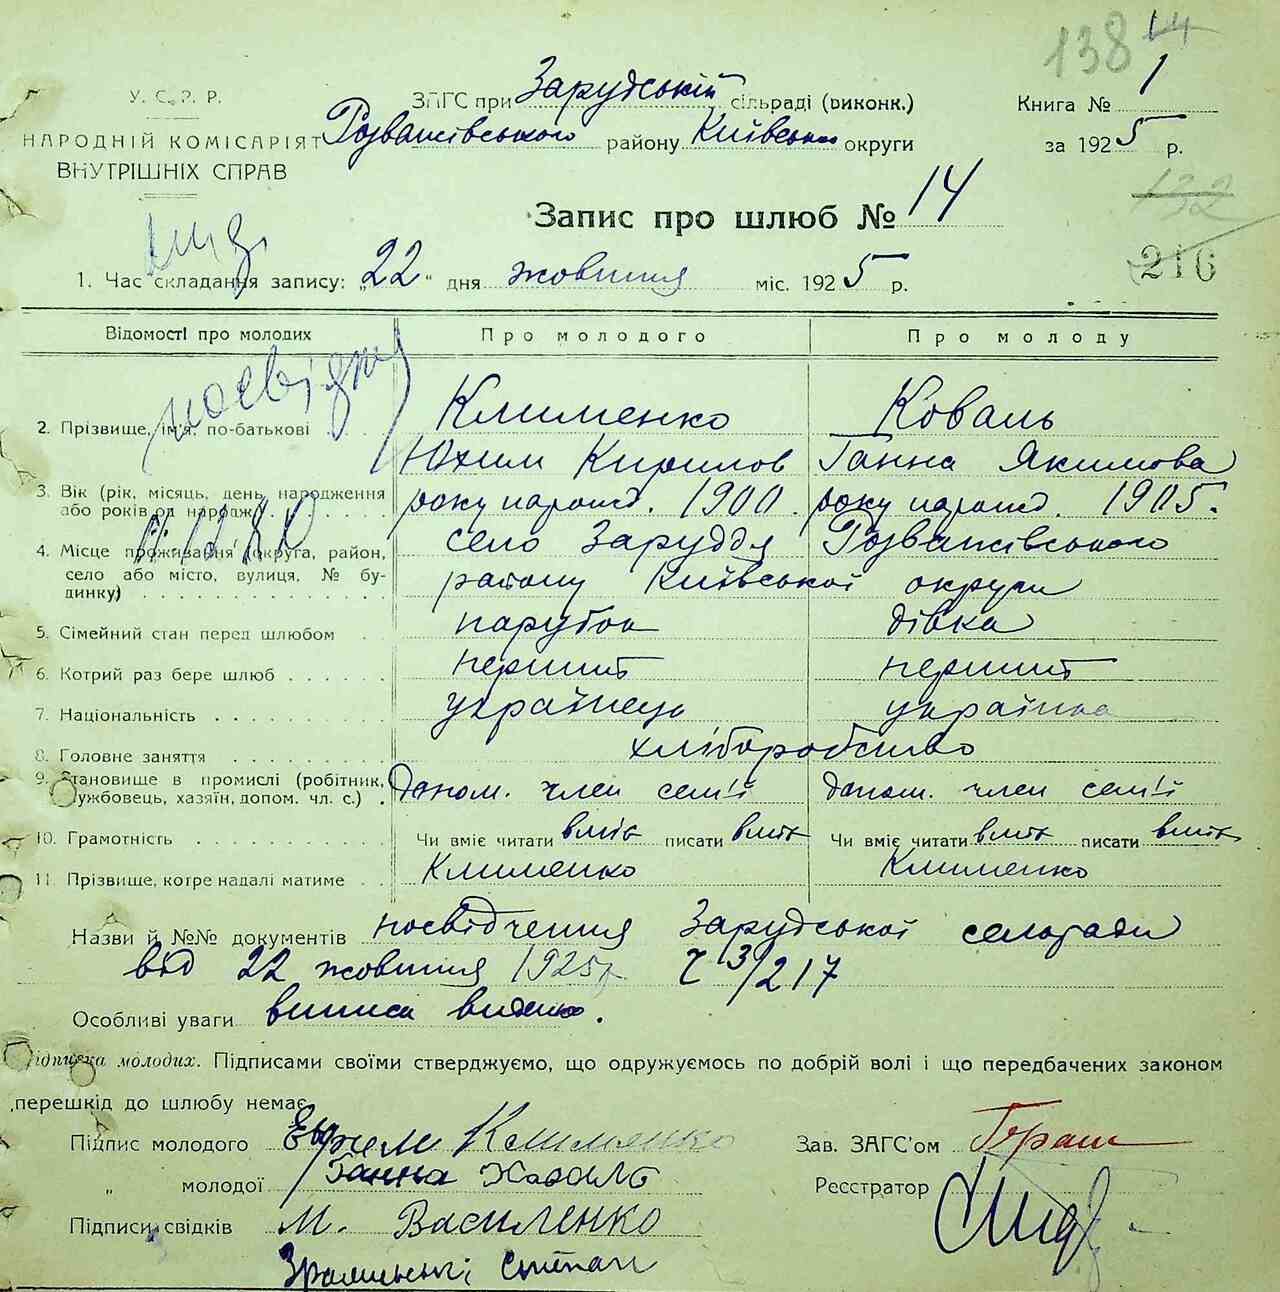 138 14
У. С. Р. Р.
НАРОДНІЙ КОМІСАРІЯТ
ВНУТРІШНІХ СПРАВ
ЗАГС при Зарудській сільраді (виконк.)
Розважівського району Київської округи
Книга № 1
за 1925 р.
132
216
Запис про шлюб № 14
1. Час складання запису: „22" дня жовтня міс. 1925 р.
Відомості про молодих Про молодого Про молоду
2. Прізвище, ім'я, по-батькові Клименко Коваль
Юхим Кирилов Ганна Якимова
3. Вік (рік, місяць, день, народження або років од народж.) року народ. 1900. року народ. 1905.
4. Місце проживання (округа, район, село або місто, вулиця, № будинку) село Заруддя Розважівського
району Київської округи
5. Сімейний стан перед шлюбом парубок дівка
6. Котрий раз бере шлюб перший перший
7. Національність українець українка
8. Головне заняття хліборобство
9. Становище в промислі (робітник, службовець, хазяїн, допом. чл. с.) Допом. член сем'ї допом. член сем'ї
10. Грамотність Чи вміє читати вміє писати вміє Чи вміє читати вміє писати вміє
11. Прізвище, котре надалі матиме Клименко Клименко
Назви й №№ документів посвідчення Зарудської сельради
від 22 жовтня 1925р ч 13/217
Особливі уваги виписа видана.
Підписка молодих. Підписами своїми стверджуємо, що одружуємось по добрій волі і що передбачених законом
перешкід до шлюбу немає.
Підпис молодого Клименко
„ молодої Ганна Коваль
Підписи свідків М. Василенко
Зав. ЗАГС'ом
Реєстратор